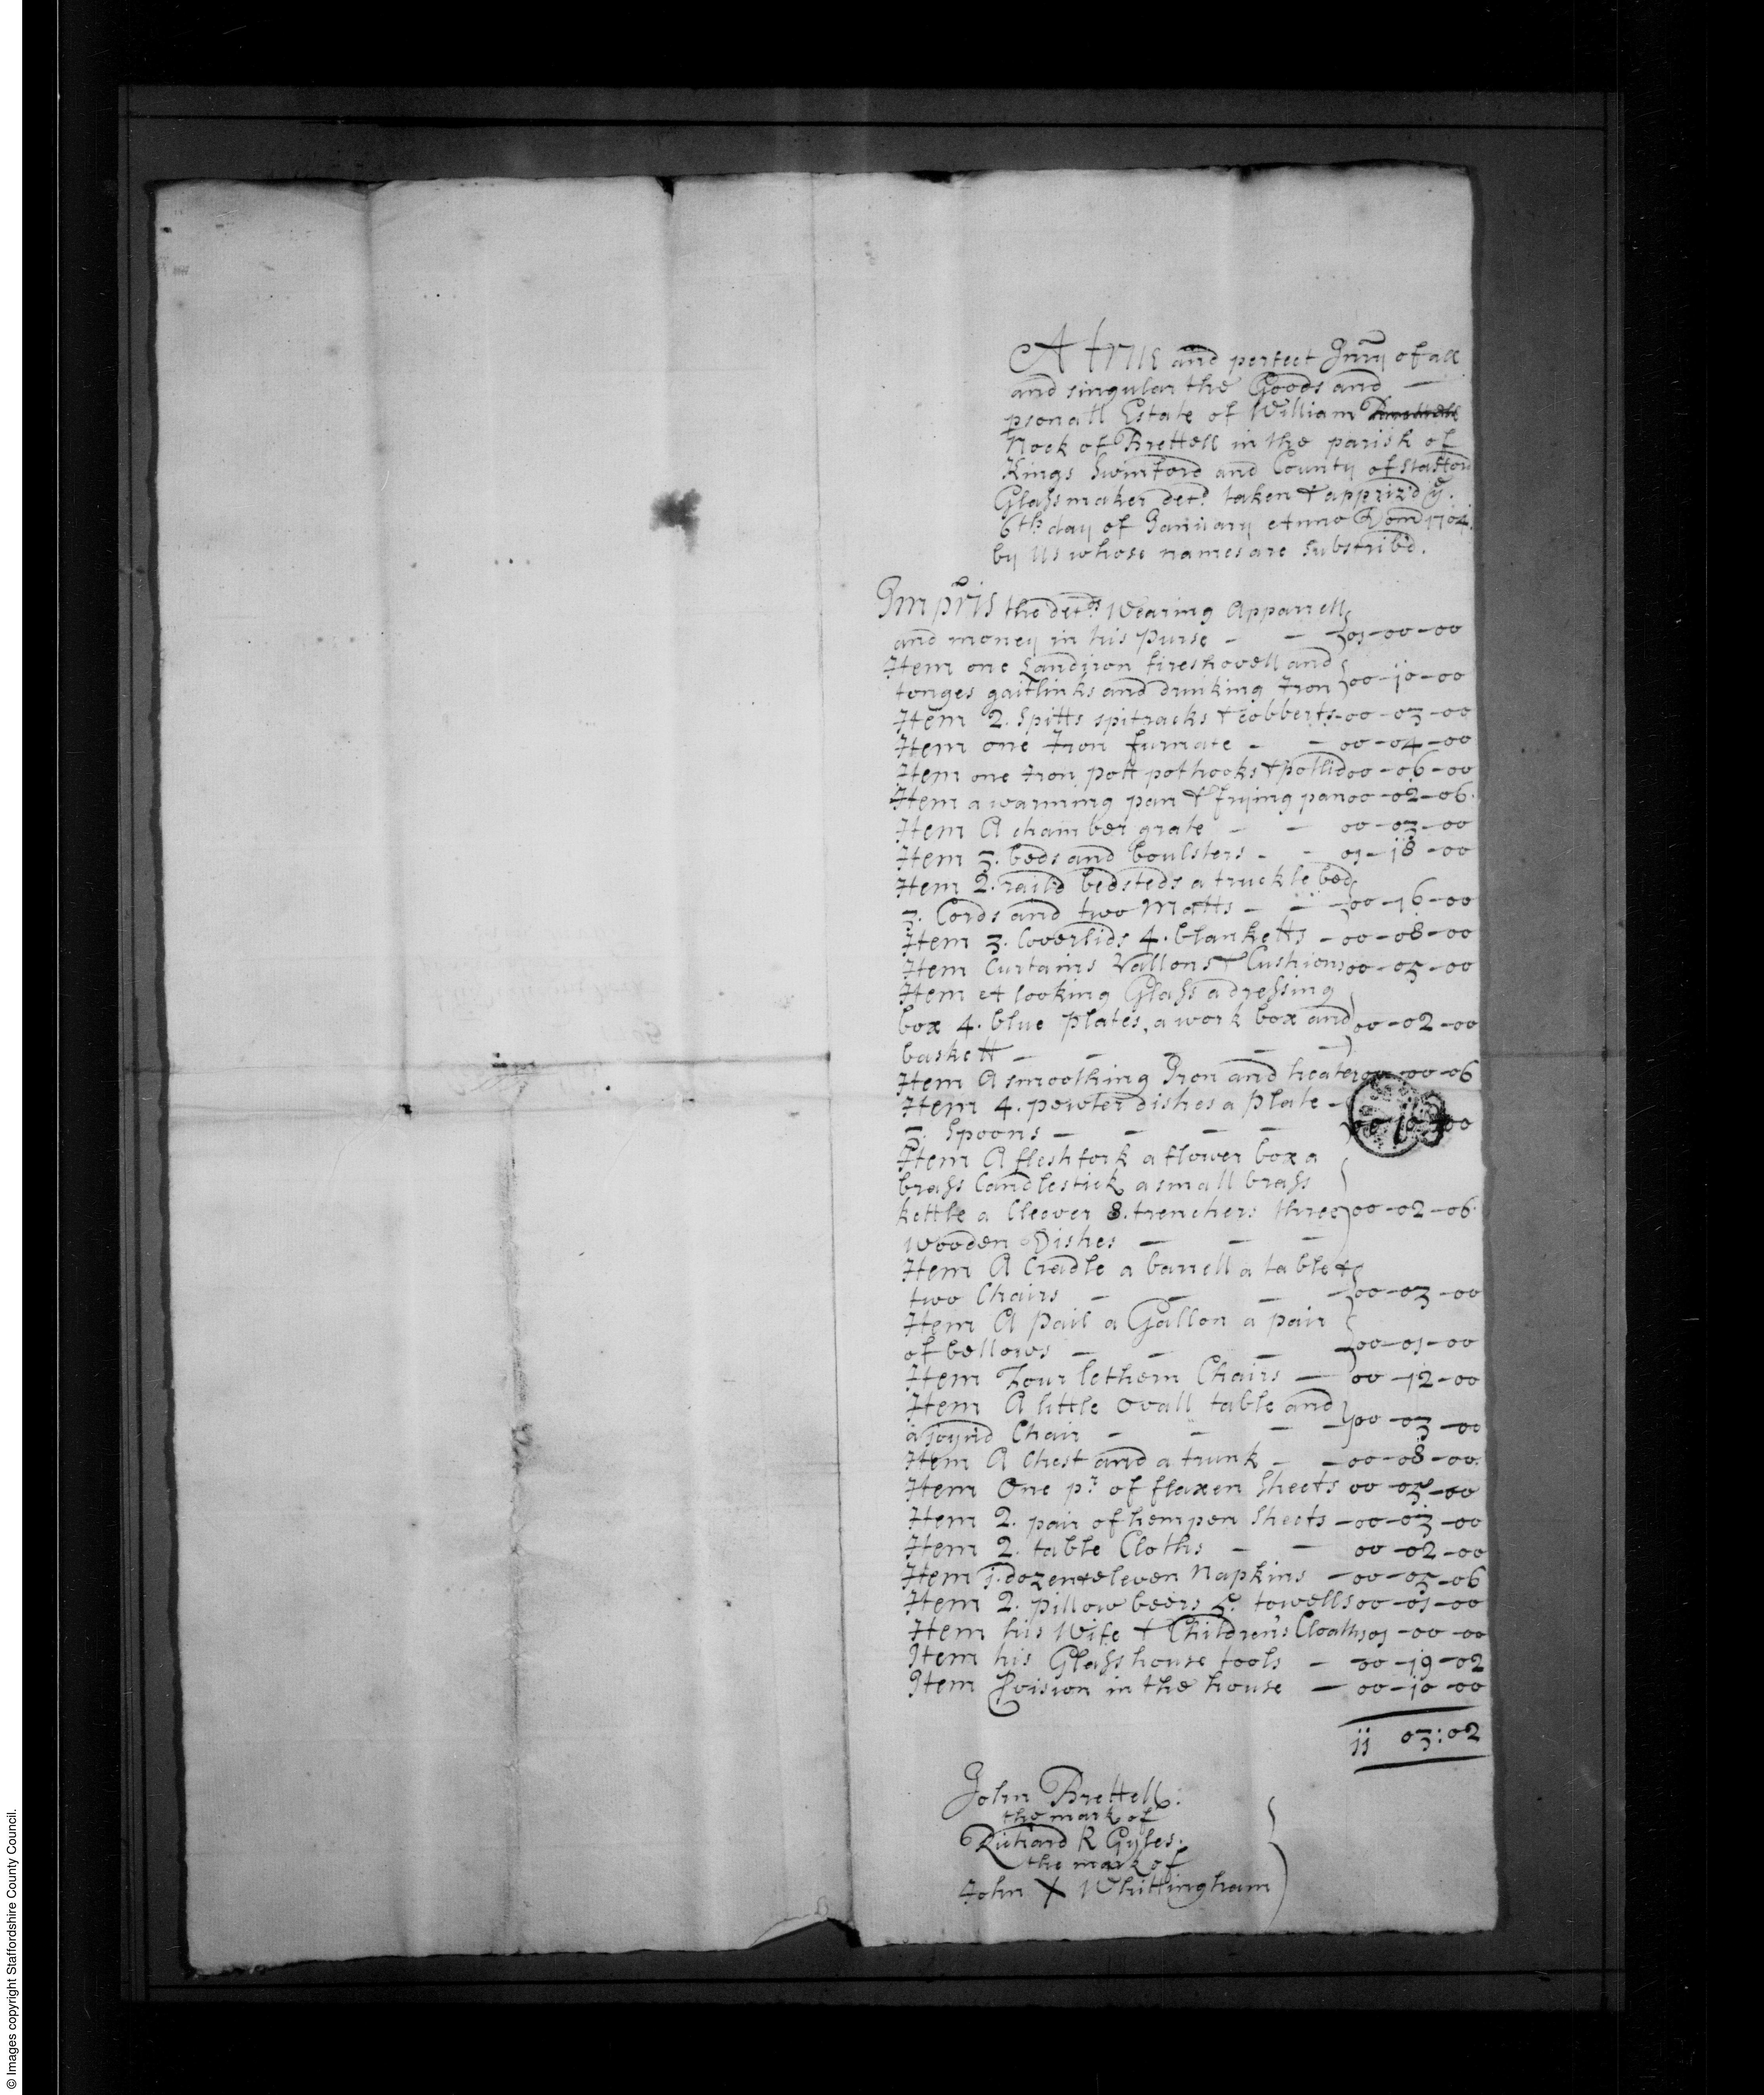 A true and perfect Inry of all
and singular the Goods and —
psonall Estate of William
Nock of Brettell in the parish of
Kings Swinford and County of Stafford
Glassmaker decd. taken & apprizd ye.
6th day of January Anno Dom 1704.
by us whose names are Subscribd.
Impris the decds Wearing Apparrell
and money in his purse - - 01-00-00
Item one Landiron fireshovell and
tonges gaitlinks and drinking Iron 00-10-00
Item 2. Spitts spitracks & Cobberts-00-03-00
Item one Iron furnace - - 00-04-00
Item one Iron pott pothooks & Pottlid 00-06-00
Item a warming pan & frying pan 00-02-06.
Item A chamber grate - - 00-03-00
Item 3. beds and boulsters - - 01-18-00
Item 2. raild bedsteds a truckle bed
3. Cords and two Matts - - 00-16-00
Item 3. Coverlids 4. blanketts - 00-08-00
Item Curtains Vallons & Cushions 00-05-00
Item A looking Glass a dressing
box 4. blue plates, a work box and 00-02-00
baskett - - - - -
Item A smoothing Iron and heater 00-00-06
Item 4. pewter dishes a plate -
3. Spoons - - - - 00-10-00
Item A fleshfork a flower box a
brass Candlestick a small brass
kettle a Cleaver 8. trenchers three 00-02-06.
wooden Dishes — — —
Item A Cradle a barrell a table &
two Chairs - - - - 00-03-00
Item A Pail a Gallon a pair
of bellows - - - 00-01-00
Item Four lethern Chairs — 00-12-00
Item A little Ovall table and
a joynd Chair - - - - 00-03-00
Item A Chest and a trunk - - 00-08-00.
Item One pr. of flaxen Sheets 00-05-00
Item 2. pair of hempen Sheets - 00-03-00
Item 2. table Cloths - - 00-02-00
Item j. dozen & eleven Napkins - 00-05-06
Item 2. pillow beers 5. towells 00-01-00
Item his Wife & Childrens Cloaths 01-00-00
Item his Glasshouse tools - 00-19-02
Item Pvision in the house — 00-10-00
jj 03:02
John Brettell:
the mark of
Richard R Gyles.
the mark of
John X Whittingham
© Images copyright Staffordshire County Council.